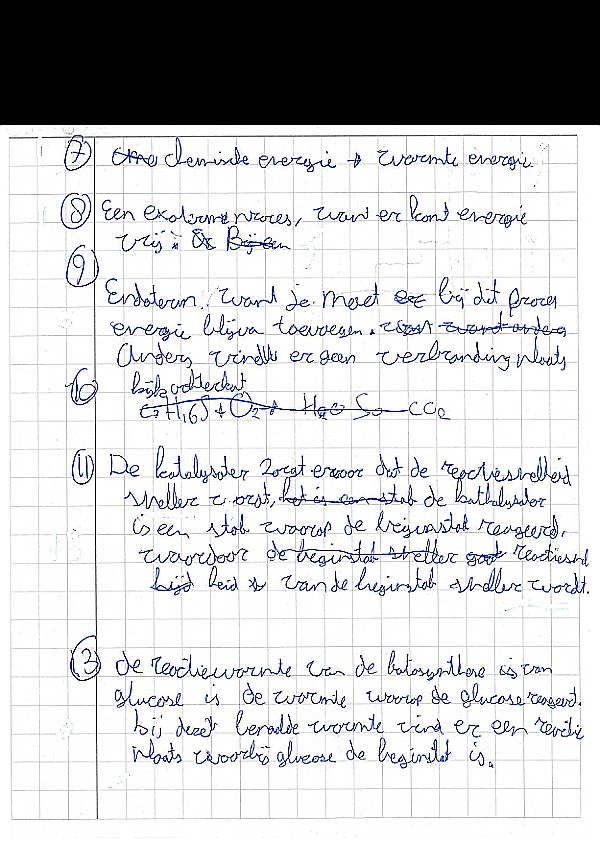 7 chemische energie → warmte energie
8 Een exotherm proces, want er komt energie
vrij.
9
Endoterm. want je moet bij dit proces
energie blijven toevoegen.
Anders vindt er geen verbranding plaats
10 kijk achterkant
C7H16S + O2 → H2O SO CO2
11 De katalysator zorgt ervoor dat de reactiesnelheid
sneller wordt, de kathalysator
is een stof waarop de beginstof reageerd,
waardoor de reactiesnel
heid van de beginstof sneller wordt.
13 de reactiewarmte van de fotosynthese is van
glucose is de warmte waarop de glucose reageerd.
bij deze bepaalde warmte vind er een reactie
plaats waarbij glucose de beginstof is.